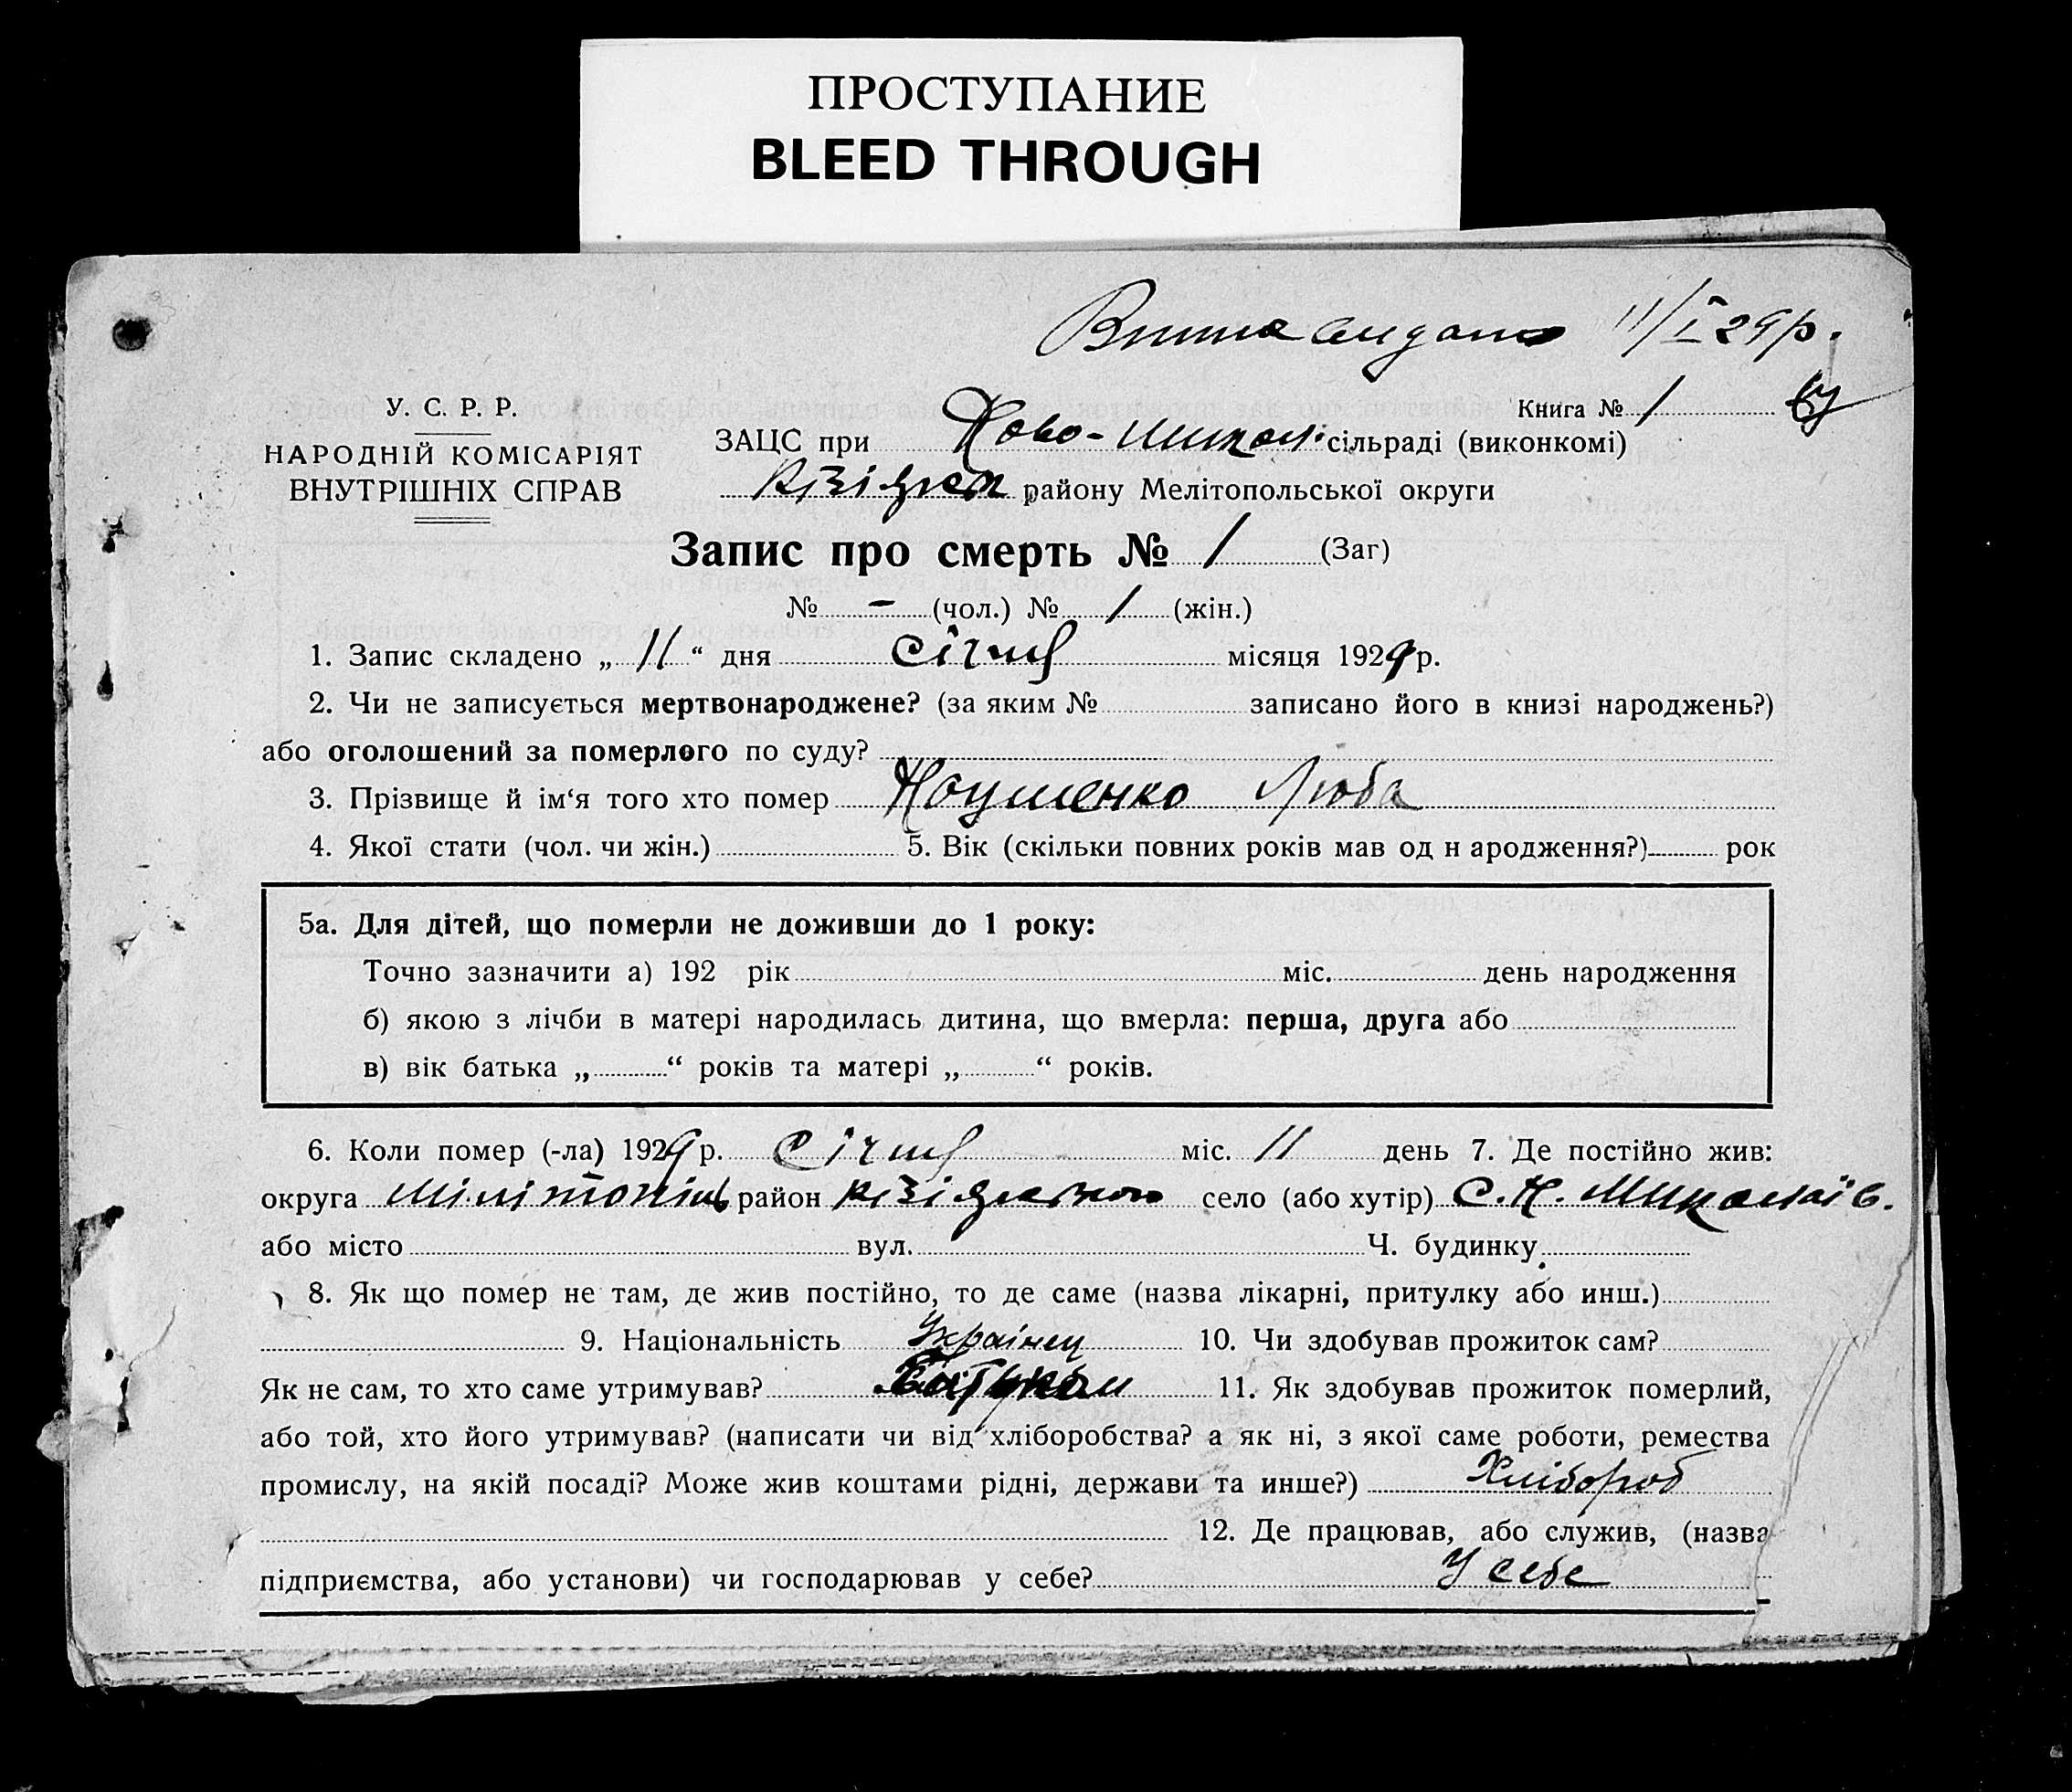 ПРОСТУПАНИЕ
BLEED THROUGH
видано 11/I 29р.
У. С. Р. Р.
НАРОДНІЙ КОМІСАРІЯТ
ВНУТРІШНІХ СПРАВ
Книга № 1
ЗАЦС при Ново-Микол. сільраді (виконкомі)
Кізіярск району Мелітопольської округи
Запис про смерть № 1 (Заг)
№ - (чол.) № 1 (жін.)
1. Запис складено „ 11 “ дня січня місяця 1929 р.
2. Чи не записується мертвонароджене? (за яким № записано його в книзі народжень?)
або оголошений за померлого по суду?
3. Прізвище й ім‘я того хто помер Науменко Люба
4. Якої стати (чол. чи жін.) 5. Вік (скільки повних років мав од н ародження?) рок
5а. Для дітей, що померли не доживши до 1 року:
Точно зазначити а) 192 рік міс. день народження
б) якою з лічби в матері народилась дитина, що вмерла: перша, друга або
в) вік батька „ “ років та матері „ “ років.
6. Коли помер (-ла) 1929 р. січня міс. 11 день 7. Де постійно жив:
округа Мілітопіль район Кізіярського село (або хутір) С. Н. Миколаїв.
або місто вул. Ч. будинку
8. Як що помер не там, де жив постійно, то де саме (назва лікарні, притулку або инш.)
9. Національність Украінец 10. Чи здобував прожиток сам?
Як не сам, то хто саме утримував? 11. Як здобував прожиток померлий,
або той, хто його утримував? (написати чи від хліборобства? а як ні, з якої саме роботи, ремества
промислу, на якій посаді? Може жив коштами рідні, держави та инше?) Хлібороб
12. Де працював, або служив, (назва
підприємства, або установи) чи господарював у себе? У себе